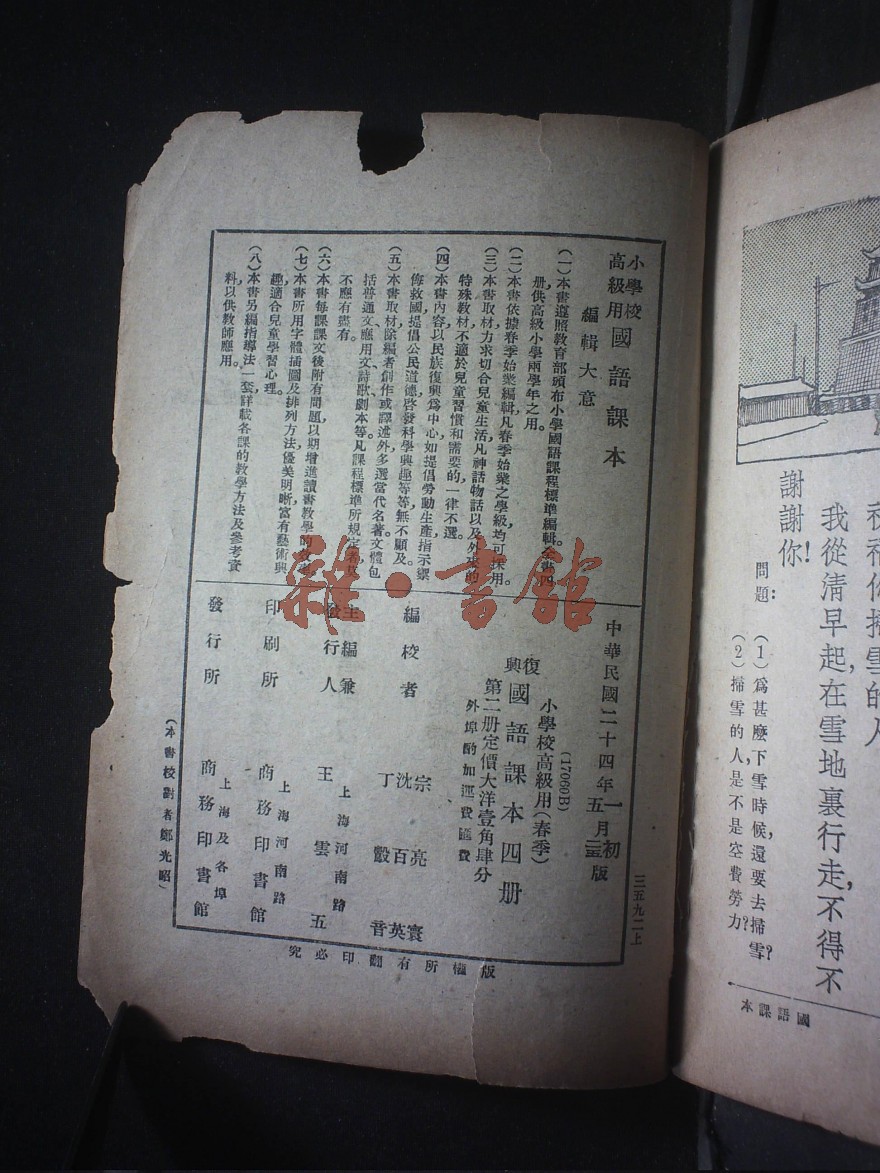 祝福你掃雪的人
謝謝你!
我從清早起,在雪地裏行走,不得不
問題:
(1)爲甚麽下雪時候,還要去掃雪?
(2)掃雪的人,是不是空費勞力?
國語課本
小學校高級用 國語課本
編輯大意
(一)本書遵照教育部頒布小學國語課程標準編輯全書四
册,供高級小學兩學年之用。
(二)本書依據春季始業編輯凡春季始業之學級均可採用。
(三)本書取材力求切合兒童生活凡神話物話以及外來的
特殊教材不適於兒童習慣和需要的一律不選。
(四)本書內容以民族復興爲中心如提倡勞動生產指示禦
侮救國提倡公民道德啓發科學興趣等等無不顧及。
(五)本書取材,除編者創作或譯述外多選當代名著文體包
括普通文、應用文、詩歌、劇本等。凡課程標準所規定者
不應有盡有。
(六)本書每課課文後附有問題以期增進讀書教學的
(七)本書所用字體插圖及排列方法,優美明晰,富有藝術興
趣,適合兒童學習心理。
(八)本書另編指導法一套,詳載各課的教學方法及參考資
料,以供教師應用。
三五九二上
中華民國二十四年一月初版
五月
(17060B)
小學校高級用(春季)
復興國語課本四册
第二册定價大洋壹角肆分
外埠酌加運費匯費
編校者
宗亮寰
沈百英
丁㲄音
主編兼發行人
上海河南路
王雲五
印刷所
上海河南路
商務印書館
發行所
上海及各埠
商務印書館
(本書校對者鄭光昭)
版權所有翻印必究
雜·書館